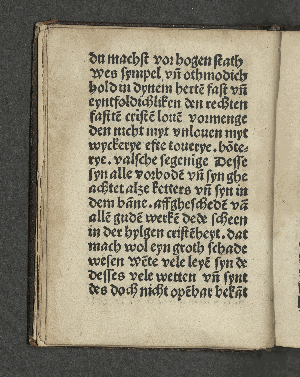 du machst vor hogen stath
wes sympel vñ othmodich
hold in dynem hertẽ fast vñ
eyntfoldichliken den rechten
fastẽ cristẽ louẽ vormenge
den nicht myt vnlouen myt
wyckerye efte touerye. bõte-
rye. valsche segenige Desse
syn alle vorbodẽ vñ syn ghe
achtet alze ketters vñ syn in
dem bãne. affgheschedẽ vã
allẽ gudẽ werkẽ dede scheen
in der hylgen cristẽheyt. dat
mach wol eyn groth schade
wesen wẽte vele leyẽ syn de
desses vele wetten vñ synt
des doch nicht opẽbar bekãt